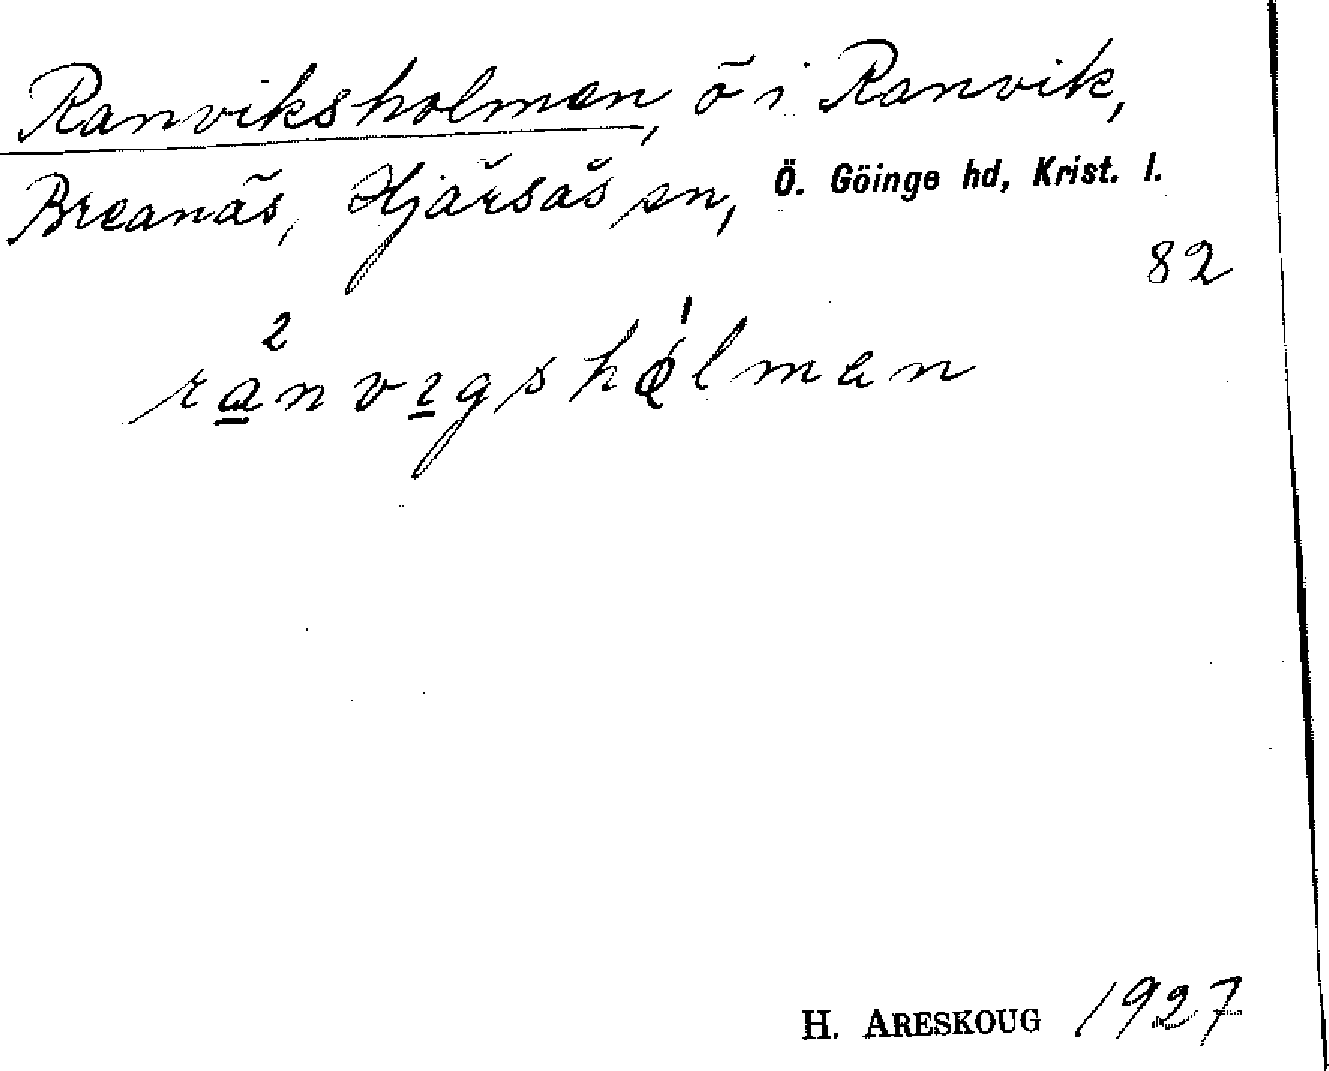 Ranviksholmen, ö i Ranvik,
Breanäs, Hjärsås sn, Ö. Göinge hd, Krist. l.
82
ra²nvıgshǿlman
H. ARESKOUG 1927